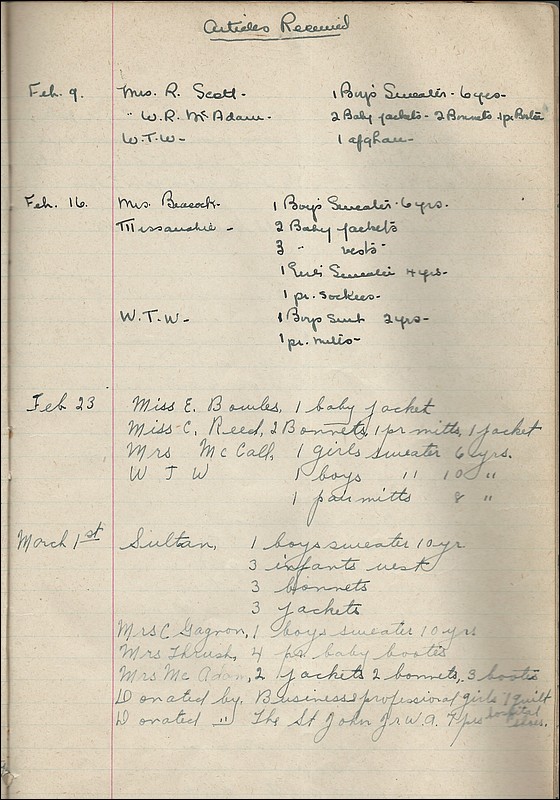 Articles Received
Feb. 9. Mrs. R. Scott - 1 Boy's Sweater - 6 yrs -
" W.R. McAdam - 2 Baby jackets - 2 Bonnets 1 pr Bootes
W.T.W - 1 afghan -
Feb. 16. Mrs. Beacock - 1 Boy's Sweater - 6 yrs.
Missanabie - 2 Baby jackets
3 " vests -
1 Girl's Sweater 4 yrs -
1 pr. sockees -
W.T.W - 1 Boys Suit 2 yrs -
1 pr. mitts -
Feb 23 Miss E. Bowles, 1 baby jacket
Miss C. Reed, 2 Bonnets, 1 pr mitts, 1 jacket
Mrs McCall, 1 girls sweater 6 yrs.
W T W 1 boys " 10 "
1 pair mitts 8 "
March 1st Sultan, 1 boys sweater 10 yr
3 infants vest
3 bonnets
3 jackets
Mrs C Gagnon, 1 boys sweater 10 yrs
Mrs Thrush, 4 pr baby booties
Mrs Mc Adam, 2 jackets 2 bonnets, 3 bootes
Donated by. Business & professional girls 1 quilt
Donated " The St John Jr W.A. 7 prs hospital